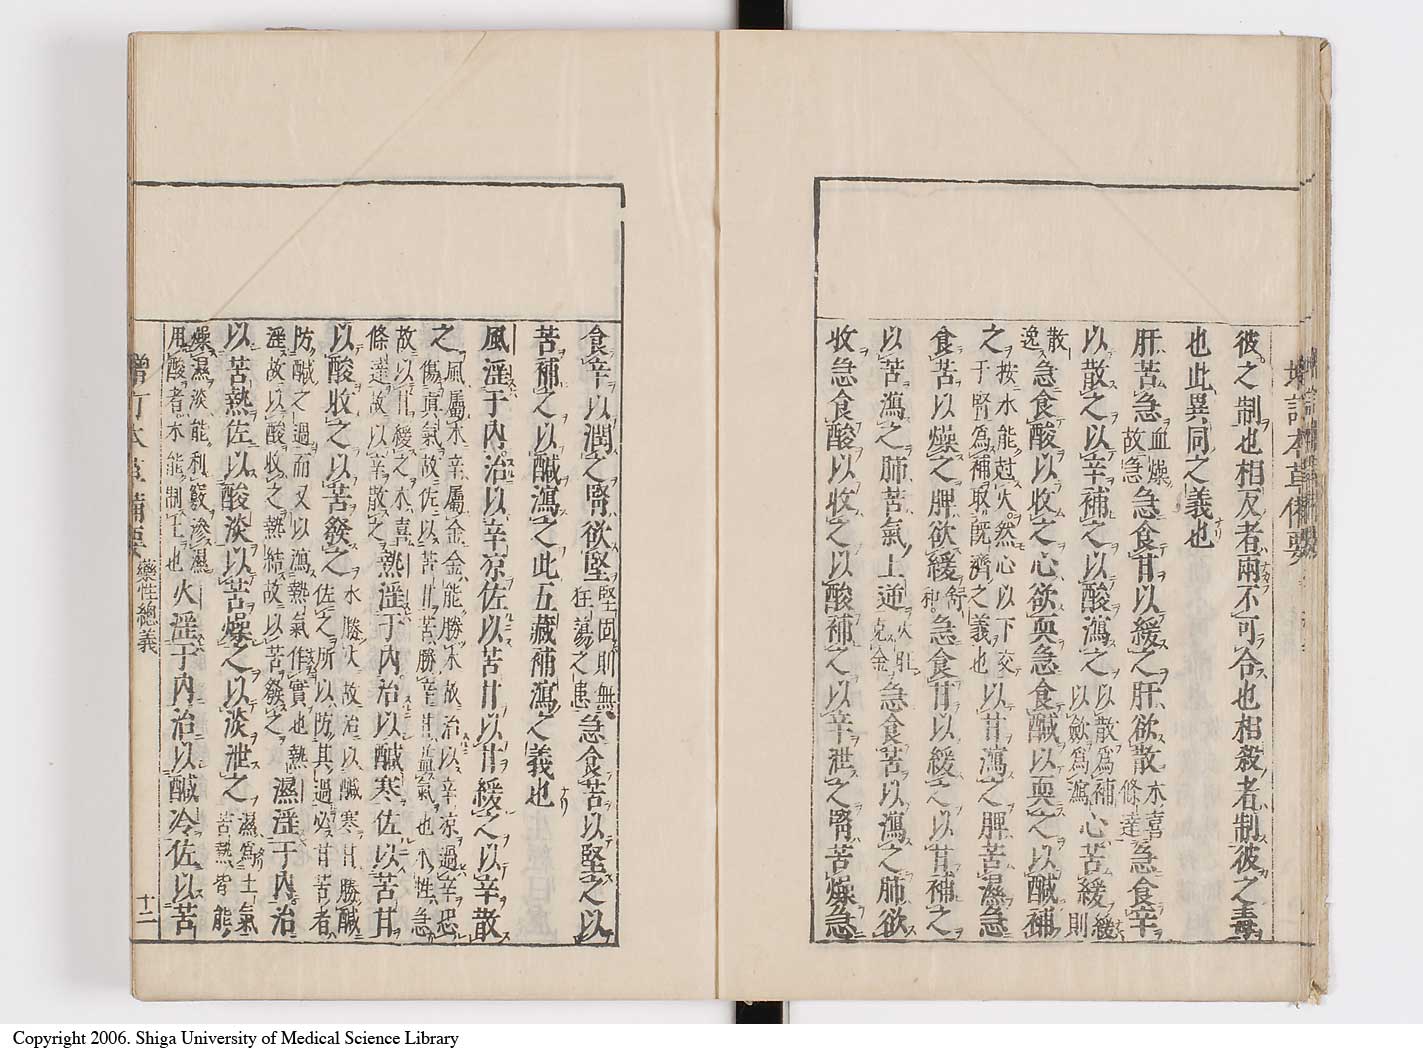 彼之制也相反者兩不可合也相殺者制彼之毒
也此異同之義也
肝苦急血燥故急急食甘以緩之肝欲散木喜條達急食辛
以散之以辛補之以酸瀉之以散爲補以斂爲瀉心苦緩緩則
散逸急食酸以收之心欲耎急食鹹以耎之以鹹補
之按水能尅火然心以下交于腎爲補取既濟之義也以甘瀉之脾苦濕急
食苦以燥之脾欲緩舒和急食甘以緩之以甘補之
以苦瀉之肺苦氣上逆火旺克金急食苦以瀉之肺欲
收急食酸以收之以酸補之以辛泄之腎苦燥急
食辛以潤之腎欲堅堅固則無狂蕩之患急食苦以堅之以
苦補之以鹹瀉之此五藏補瀉之義也
風淫于內治以辛凉佐以苦甘以甘緩之以辛散
之風屬木辛屬金金能勝木故治以辛凉過辛恐傷眞氣故佐以苦甘苦勝辛甘益氣也木性急
故以甘緩之木喜條達故以辛散之熱淫于內治以鹹寒佐以苦甘
以酸收之以苦發之水勝火故治以鹹寒甘勝鹹佐之所以防其過必甘苦者
防鹹之過而又以瀉熱氣作實也熱淫故以酸收之熱結故以苦發之濕淫于內治
以苦熱佐以酸淡以苦燥之以淡泄之濕爲土氣苦熱皆能
燥濕淡能利竅滲濕用酸者木能制土也火淫于內治以鹹冷佐以苦
增訂本草備要
藥性總義
十二
Copyright 2006. Shiga University of Medical Science Library